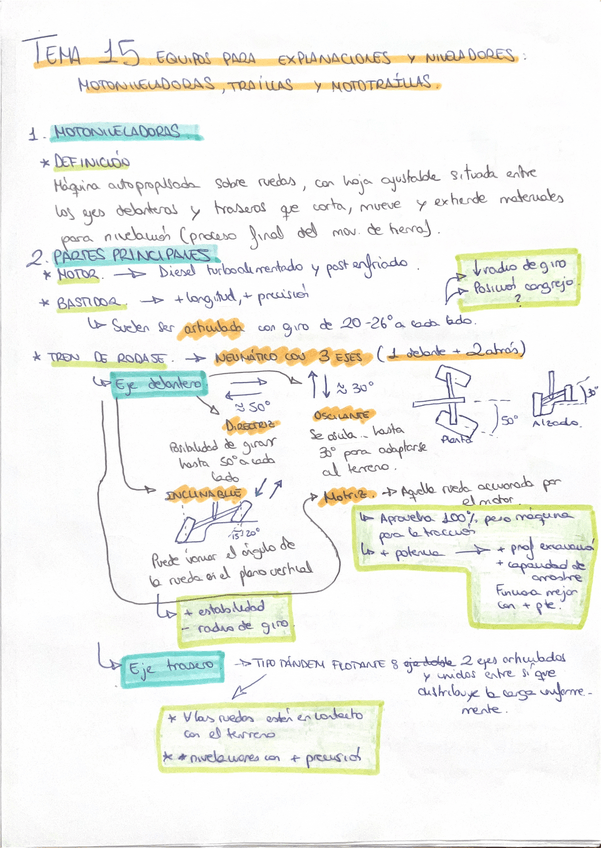 TEMA 15 EQUIPOS PARA EXPLANACIONES Y NIVELADORES:
MOTONIVELADORAS, TRAÍLLAS Y MOTOTRAÍLLAS.
1. MOTONIVELADORAS
* DEFINICIÓN
Máquina autopropulsada sobre ruedas, con hoja ajustable situada entre
los ejes delanteros y traseros que corta, mueve y extiende materiales
para nivelación (proceso final del mov. de tierras).
2. PARTES PRINCIPALES
* MOTOR. → Diesel turboalimentado y post enfriado.
* BASTIDOR. → + longitud, + precisión
↳ Suelen ser articulada con giro de 20-26° a cada lado.
↓ radio de giro
Posición cangrejo
?
* TREN DE RODASE. → NEUMÁTICO CON 3 EJES (1 delante + 2 atrás)
↳ Eje delantero
≈ 50°
DIRECTRIZ
Posibilidad de girar
hasta 50° a cada
lado
↑↓ ≈ 30°
OSCILANTE
Se oscila hasta
30° para adaptarse
al terreno.
Planta
50°
Alzado
30°
INCLINABLE
15-20°
Puede variar el ángulo de
la rueda en el plano vertical
↳ + estabilidad
- radio de giro.
MOTRIZ. → Aquella rueda accionada por
el motor.
↳ Aprovecha 100% peso máquina
para la tracción
↳ + potencia → + prof excavación
+ capacidad de
arrastre
Funciona mejor
con + pte.
↳ Eje trasero → TIPO TÁNDEM FLOTANTE 8 eje doble 2 ejes articulados
y unidos entre sí que
distribuye la carga uniforme-
mente.
* ∀ las ruedas estén en contacto
con el terreno
* nivelaciones con + precisión